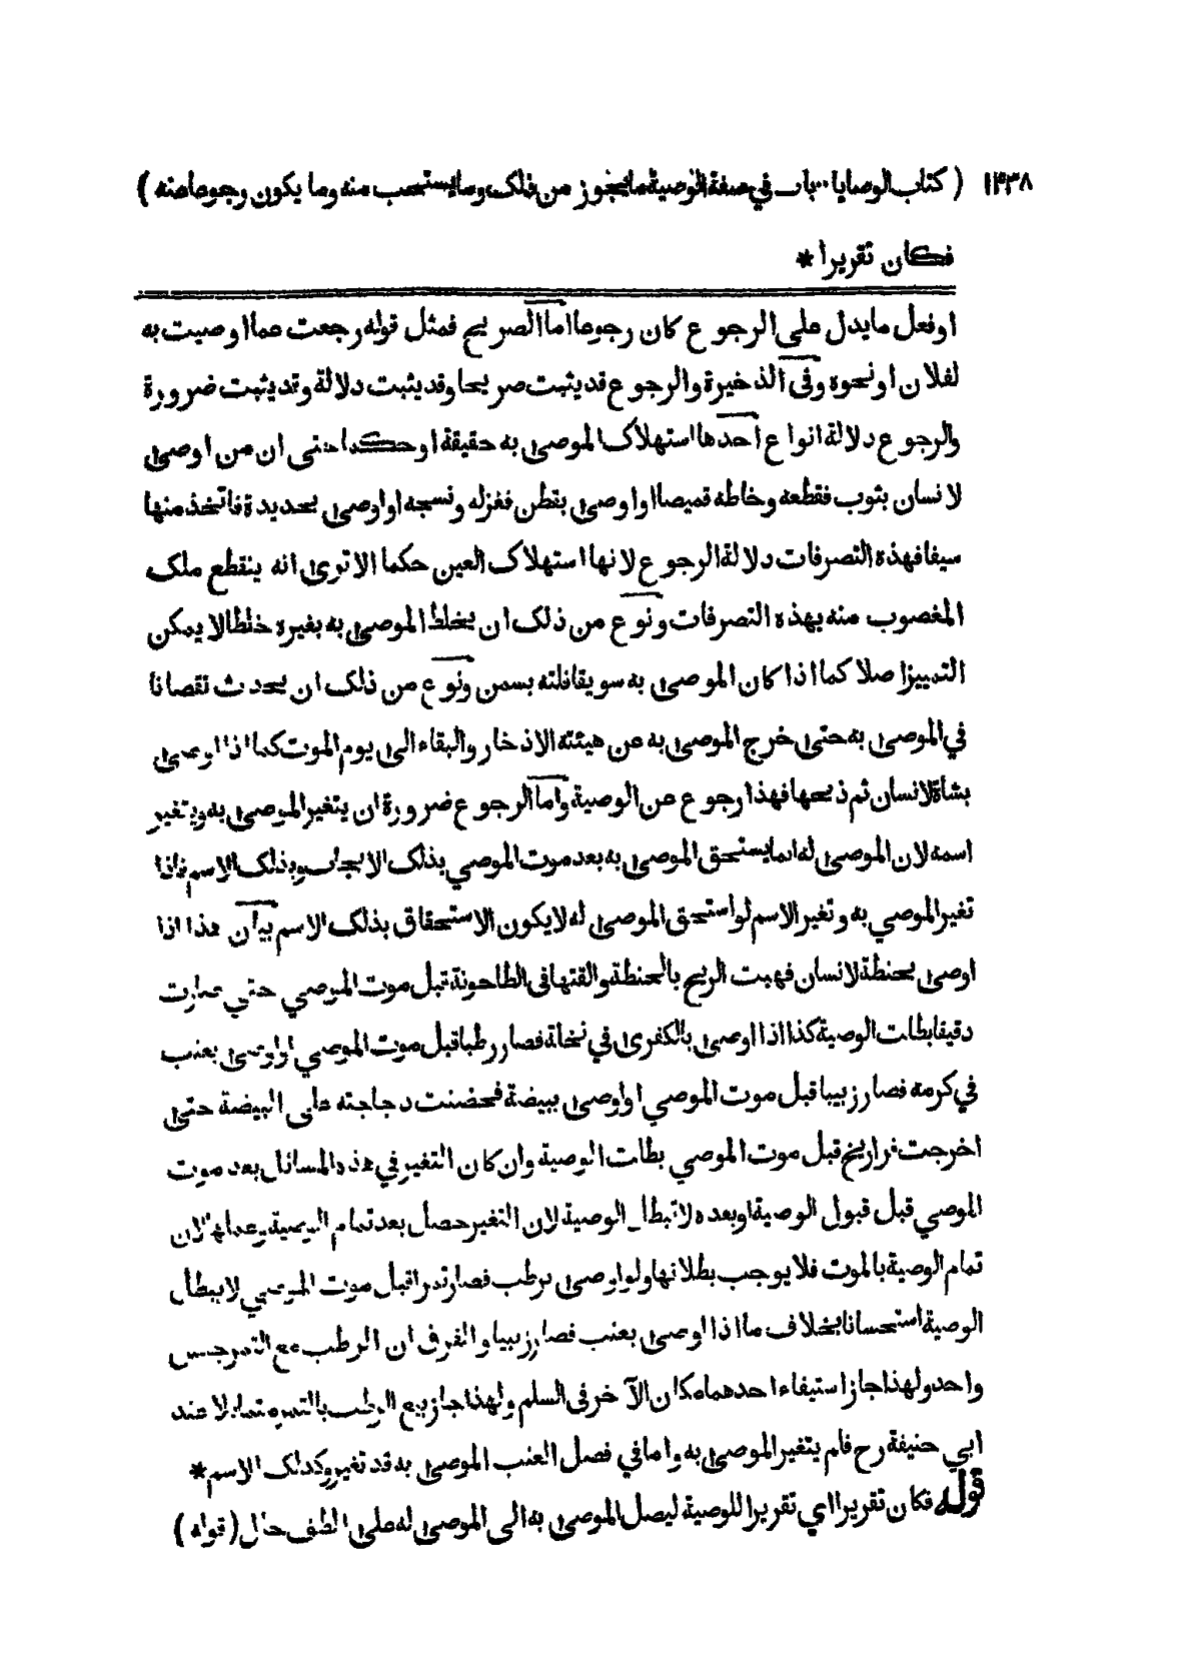 ١٤٣٨ ( كتاب الوصايا ۰۰ باب في صفة الوصية ما يجوز من ذلك وما يستحب منه وما يكون رجوعا عنه )
فكان تقريرا *
او فعل ما يدل على الرجوع كان رجوعا اما الصريح فمثل قوله رجعت عما اوصيت به
لفلان او نحوه وفى الذخيرة والرجوع قد يثبت صريحا وقد يثبت دلالة وقد يثبت ضرورة
والرجوع دلالة انواع احدها استهلاك الموصى به حقيقة او حكما حتى ان من اوصى
لانسان بثوب فقطعه وخاطه قميصا او اوصى بقطن فغزله ونسجه او اوصى بحديدة فاتخذ منها
سيفا فهذه التصرفات دلالة الرجوع لانها استهلاك العين حكما الا ترى انه ينقطع ملك
المغصوب منه بهذه التصرفات ونوع من ذلك ان يخلط الموصى به بغيره خلطا لا يمكن
التمييز اصلا كما اذا كان الموصى به سويقا فلته بسمن ونوع من ذلك ان يحدث نقصانا
في الموصى به حتى خرج الموصى به عن هيئته الادخار والبقاء الى يوم الموت كما اذا اوصى
بشاة لانسان ثم ذبحها فهذا رجوع عن الوصية واما الرجوع ضرورة ان يتغير الموصى به ويتغير
اسمه لان الموصى له انما يستحق الموصى به بعد موت الموصي بذلك الايجاب وبذلك الاسم فاذا
تغير الموصي به وتغير الاسم لو استحق الموصى له لا يكون الاستحقاق بذلك الاسم بيان هذا اذا
اوصى بحنطة لانسان فهبت الريح بالحنطة والقتها فى الطاحونة قبل موت الموصي حتى صارت
دقيقا بطلت الوصية كذا اذا اوصى بالكفرى في نخلة فصار رطبا قبل موت الموصي او اوصى بعنب
في كرمه فصار زبيبا قبل موت الموصي او اوصى ببيضة فحضنت دجاجته على البيضة حتى
اخرجت فراريخ قبل موت الموصي بطلت الوصية وان كان التغير في هذه المسائل بعد موت
الموصي قبل قبول الوصية او بعده لا تبطل الوصية لان التغير حصل بعد تمام الوصية وعملها لان
تمام الوصية بالموت فلا يوجب بطلانها ولو اوصى برطب فصار تمرا قبل موت الموصي لا يبطل
الوصية استحسانا بخلاف ما اذا اوصى بعنب فصار زبيبا والفرق ان الرطب مع التمر جنس
واحد ولهذا جاز استيفاء احدهما مكان الآخر فى السلم ولهذا جاز بيع الرطب بالتمر متماثلا عند
ابي حنيفة رح فلم يتغير الموصى به واما في فصل العنب الموصى به قد تغير وكذلك الاسم *
قوله فكان تقريرا اي تقريرا للوصية ليصل الموصى به الى الموصى له على الطف حال ( قوله )